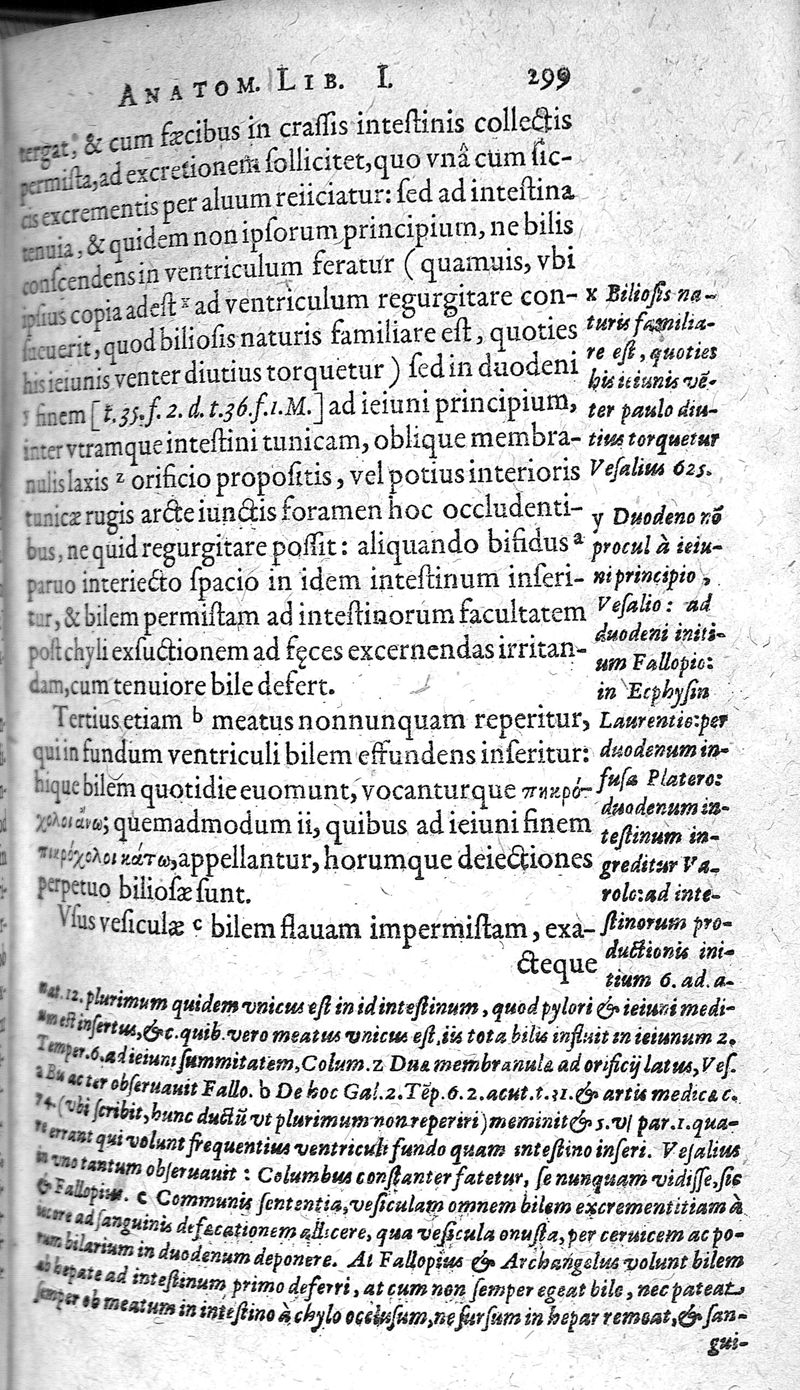 ANATOM. LIB. I. 299
tergat, & cum fæcibus in craſſis inteſtinis collectis
permiſta, ad excretionem ſollicitet, quo vnâ cum ſic-
cis excrementis per aluum reiiciatur: ſed ad inteſtina
tenuia, & quidem non ipſorum principium, ne bilis
conſcendens in ventriculum feratur (quamuis, vbi
ipſius copia adeſt x ad ventriculum regurgitare con-
ſueuerit, quod bilioſis naturis familiare eſt, quoties
his ieiunis venter diutius torquetur) ſed in duodeni
y finem [t.35.f.2.d.t.36.f.1.M.] ad ieiuni principium,
inter vtramque inteſtini tunicam, oblique membra-
nulis laxis z orificio propoſitis, vel potius interioris
tunicæ rugis arcte iunctis foramen hoc occludenti-
bus, ne quid regurgitare poſſit: aliquando bifidus a
paruo interiecto ſpacio in idem inteſtinum inſeri-
tur, & bilem permiſtam ad inteſtinorum facultatem
poſt chyli exſuctionem ad fęces excernendas irritan-
dam, cum tenuiore bile defert.
Tertius etiam b meatus nonnunquam reperitur,
qui in fundum ventriculi bilem effundens inſeritur:
hique bilem quotidie euomunt, vocanturque πικρό-
χολοι ἄνω; quemadmodum ii, quibus ad ieiuni finem
πικρόχολοι κάτω, appellantur, horumque deiectiones
perpetuo bilioſæ ſunt.
Vſus veſiculæ c bilem flauam impermiſtam, exa-
cteque
x Bilioſis na-
turis familia-
re eſt, quoties
his ieiunis vē-
ter paulo diu-
tius torquetur
Veſalius 625.
y Duodeno nō
procul à ieiu-
ni principio,
Veſalio: ad
duodeni initi-
um Fallopio:
in Ecphyſin
Laurentio: per
duodenum in-
fuſa Platero:
duodenum in-
teſtinum in-
greditur Va-
rolo: ad inte-
ſtinorum pro-
ductionis ini-
tium 6. ad. a-
nat. 12. plurimum quidem vnicus eſt in id inteſtinum, quod pylori & ieiuni medi-
um eſt inſertus, &c. quib. vero meatus vnicus eſt, iis tota bilis influit in ieiunum 2.
Temper. 6. ad ieiuni ſummitatem, Colum. z Duæ membranulæ ad orificij latus, Veſ.
a Bu acter obſeruauit Fallo. b De hoc Gal. 2. Tēp. 6. 2. acut. t. 31. & artis medicæ c.
74. (vbi ſcribit, hunc ductū vt plurimum non reperiri) meminit & 5. vſ par. 1. qua-
re errant qui volunt frequentius ventriculi fundo quam inteſtino inſeri. Veſalius
in vno tantum obſeruauit: Columbus conſtanter fatetur, ſe nunquam vidiſſe, ſic
& Fallopius. c Communis ſententia, veſiculam omnem bilem excrementitiam à
iecore ad ſanguinis defæcationem allicere, qua veſicula onuſta, per ceruicem ac po-
rum bilarium in duodenum deponere. At Fallopius & Archangelus volunt bilem
ab hepate ad inteſtinum primo deferri, at cum non ſemper egeat bile, nec pateat
ſemper ob meatum in inteſtino à chylo occluſum, ne ſurſum in hepar remeat, & ſan-
gui-